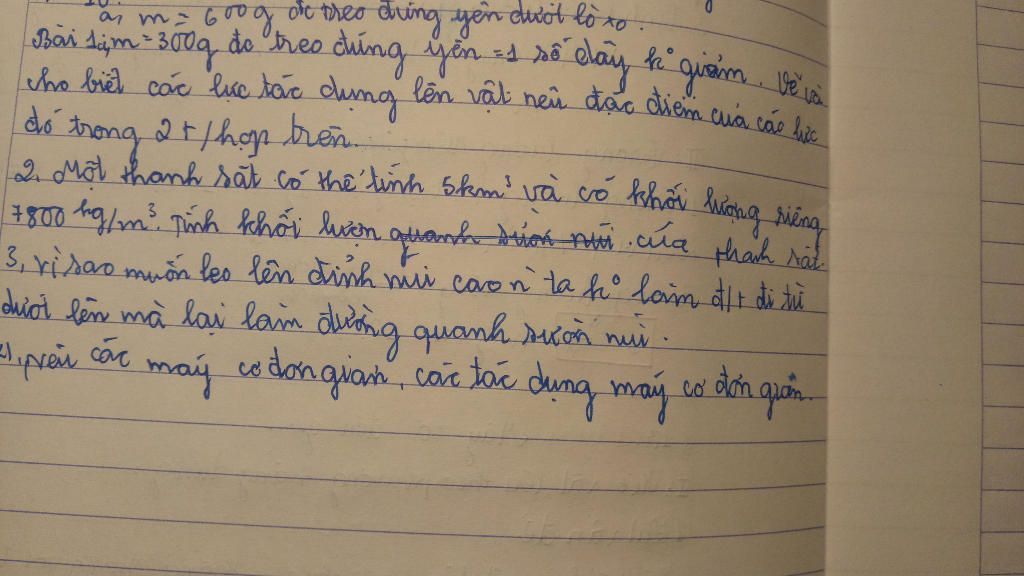 a, m = 600g đc treo đứng yên dưới lò xo
Bài 1a, m = 300g đc treo đứng yên = 1 số dây kº giảm. Vẽ và
cho biết các lực tác dụng lên vật nêu đặc điểm của các lực
đó trong 2 t/hợp trên.
2. Một thanh sắt có thể tính 5km³ và có khối lượng riêng
7800 kg/m³. Tính khối lượn quanh sườn núi của thanh sắt.
3, vì sao muốn leo lên đỉnh núi cao n ta kº làm đ/t đi từ
dưới lên mà lại làm đường quanh sườn núi.
4, Nêu các máy cơ đơn gian, các tác dụng máy cơ đơn giản.